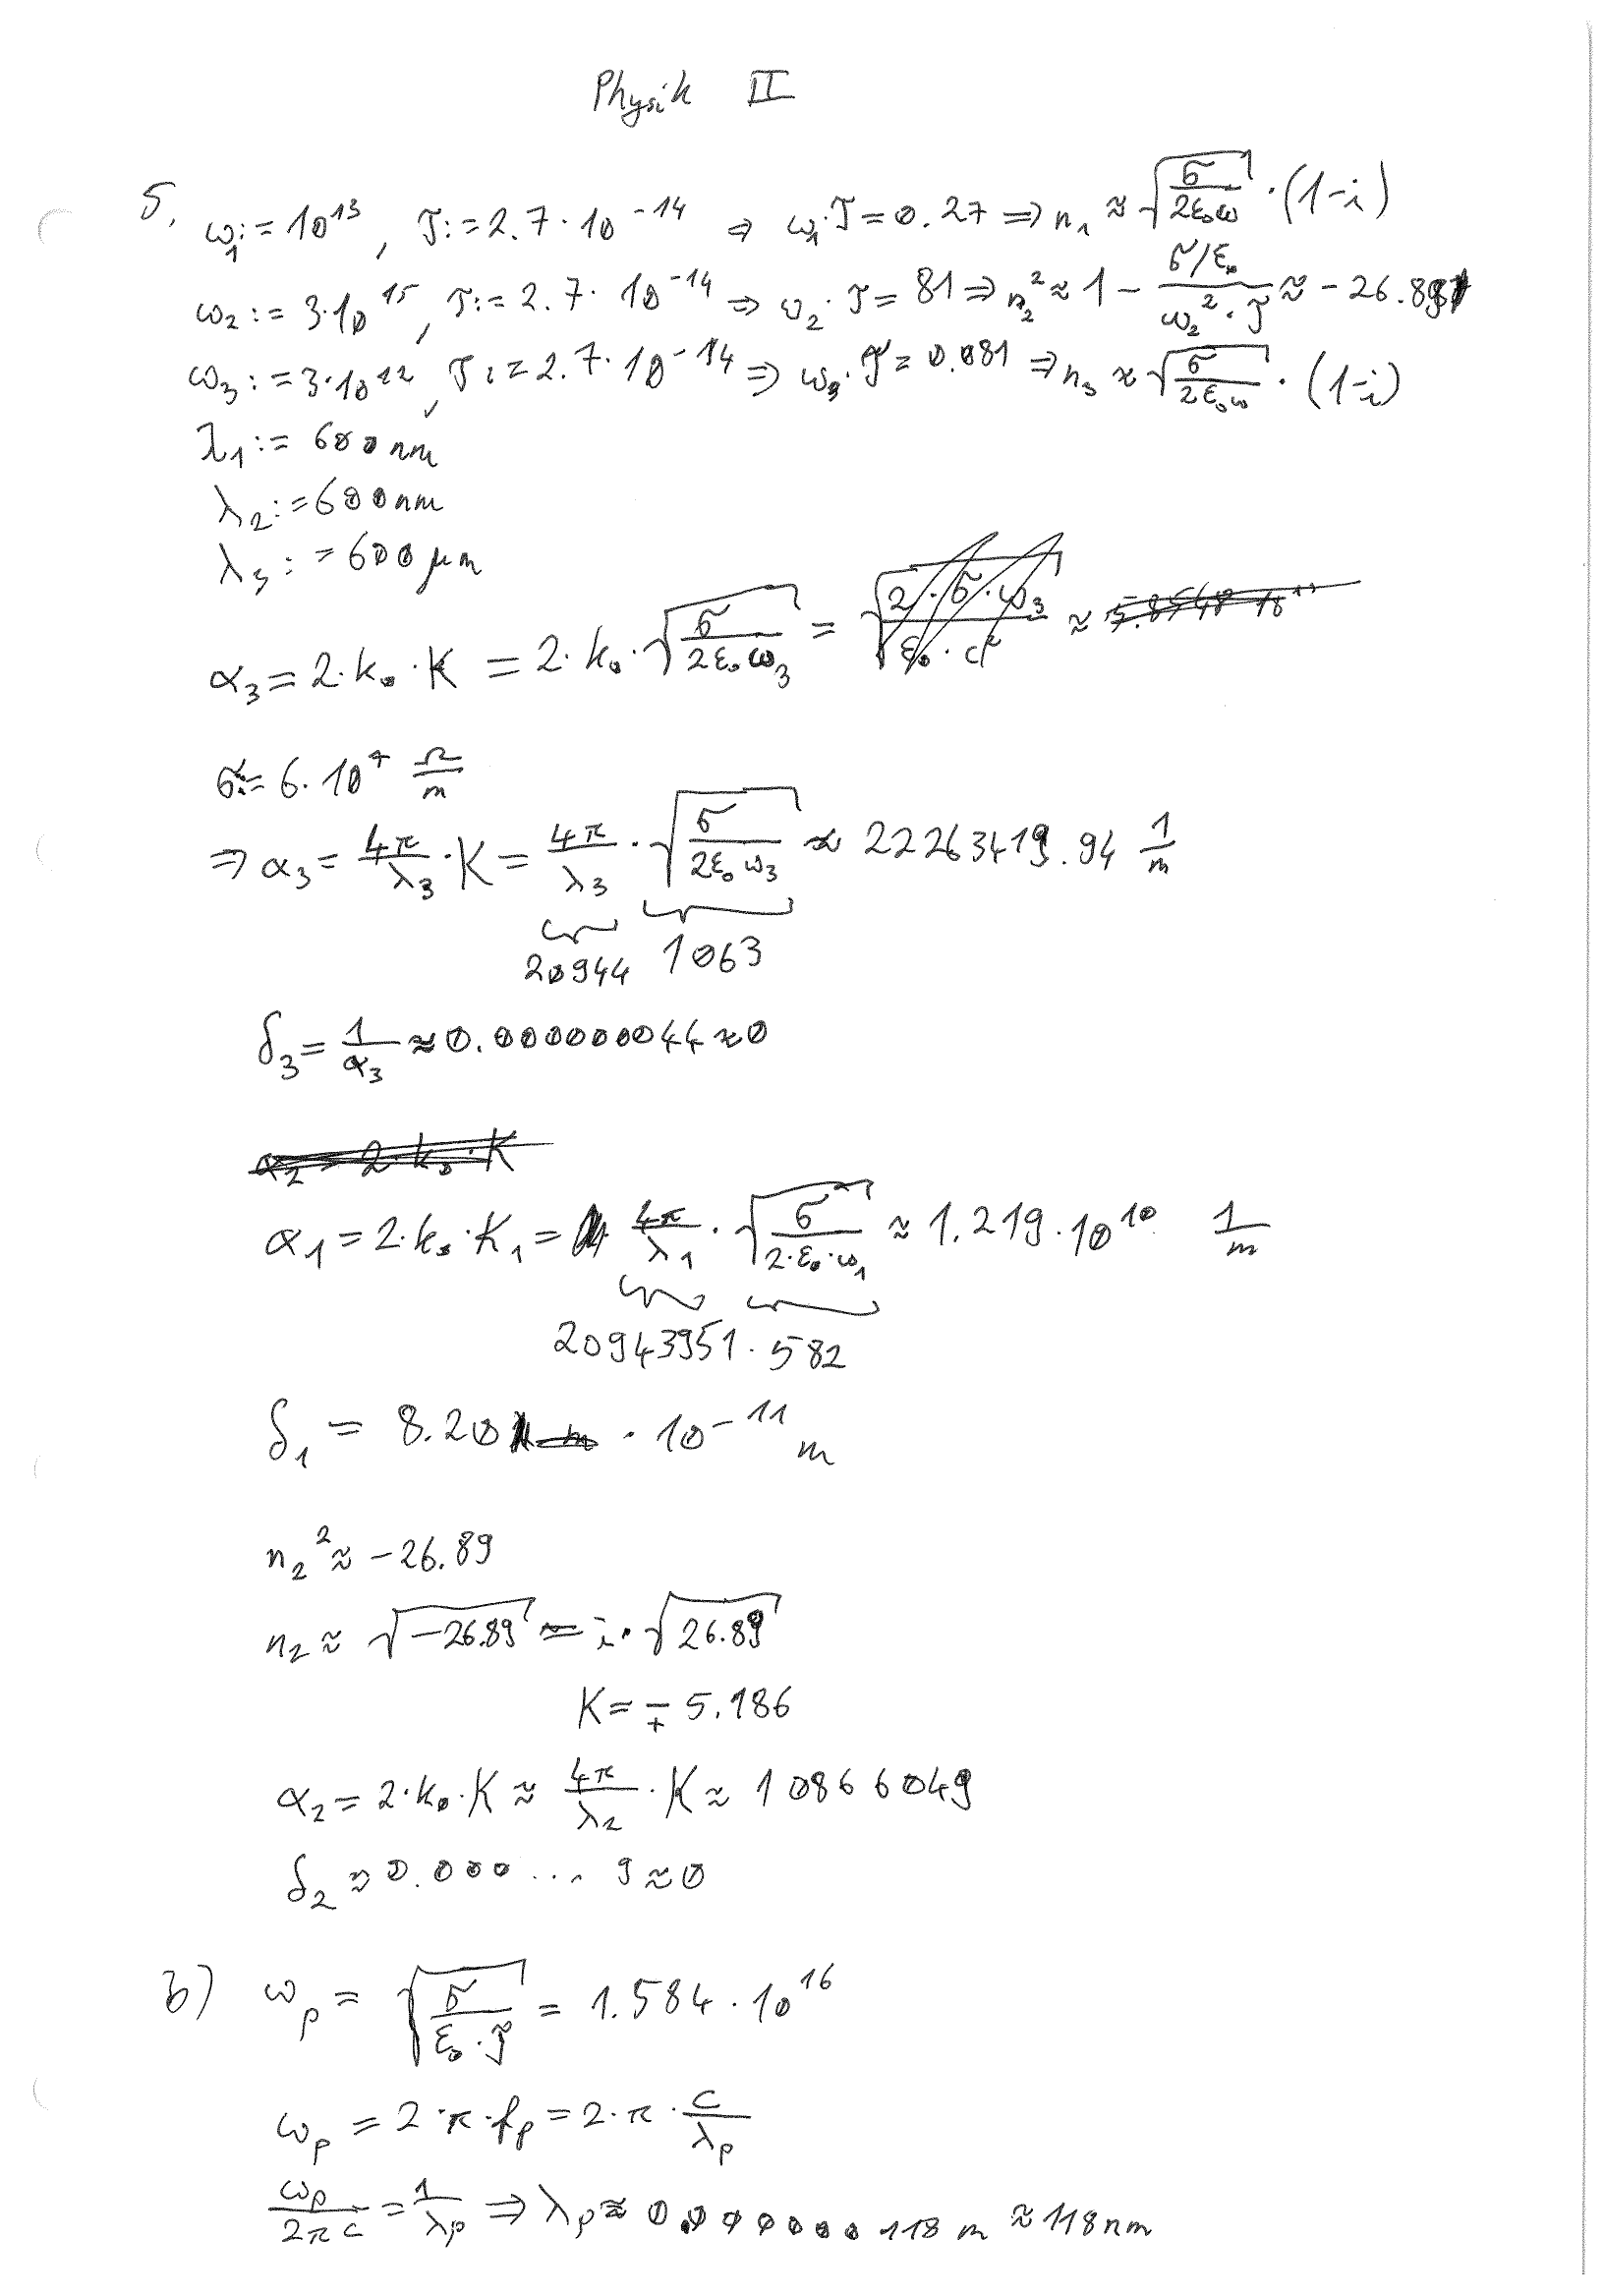 Physik II
5. ω₁ := 10¹³, τ := 2.7 · 10⁻¹⁴ ⇒ ω₁·τ = 0.27 ⇒ n₁ ≈ √(σ/(2ε₀ω)) · (1-i)
ω₂ := 3·10¹⁵, τ := 2.7 · 10⁻¹⁴ ⇒ ω₂ · τ = 81 ⇒ n₂² ≈ 1 - (σ/ε₀)/(ω₂² · τ) ≈ -26.89
ω₃ := 3·10¹², τ := 2.7 · 10⁻¹⁴ ⇒ ω₃ · τ = 0.081 ⇒ n₃ ≈ √(σ/(2ε₀ω)) · (1-i)
λ₁ := 600 nm
λ₂ := 600 nm
λ₃ := 600 μm
α₃ = 2·k₀·K = 2·k₀·√(σ/(2ε₀ω₃)) = √((2·σ·ω₃)/(ε₀·c²)) ≈
σ := 6·10⁷ Ω/m
⇒ α₃ = 4π/λ₃ · K = 4π/λ₃ · √(σ/(2ε₀ω₃)) ≈ 22263419.94 1/m
20944 1063
δ₃ = 1/α₃ ≈ 0.000000044 ≈ 0
α₂ = 2·k₀·K
α₁ = 2·k₀·K₁ = 4π/λ₁ · √(σ/(2·ε₀·ω₁)) ≈ 1.219·10¹⁰ 1/m
20943951 · 582
δ₁ = 8.20 · 10⁻¹¹ m
n₂² ≈ -26.89
n₂ ≈ √(-26.89) = i·√(26.89)
K = ∓ 5.186
α₂ = 2·k₀·K ≈ 4π/λ₂ · K ≈ 108666049
δ₂ ≈ 0.000 ... 9 ≈ 0
b) ωₚ = √(σ/(ε₀·τ)) = 1.584 · 10¹⁶
ωₚ = 2·π·fₚ = 2·π · c/λₚ
ωₚ/(2πc) = 1/λₚ ⇒ λₚ ≈ 0.000000118 m ≈ 118 nm